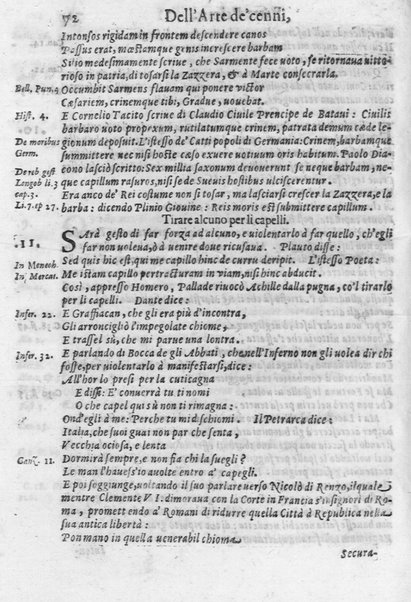 72 Dell'Arte de'cenni,
Intonsos rigidam in frontem descendere canos
Passus erat, mæstamque genis increscere barbam
Silio medesimamente scriue, che Sarmente fece voto, se ritornaua vitto-
rioso in patria, di tosarsi la Zazzera, & à Marte consecrarla.
Bell. Pun. 4. Occumbit Sarmens flauam qui ponere victor
Cæsariem, crinemque tibi, Gradue, vouebat.
Hist. 4. E Cornelio Tacito scriue di Claudio Ciuile Prencipe de Bataui: Ciuilis
barbaro uoto propexum, rutilatumque crinem, patrata demum cæde le-
De moribus gionum deposuit. L'istesso de' Catti popoli di Germania: Crinem, barbamque
Germ. summittere nec nisi hoste cæso exuere uotiuum oris habitum. Paolo Dia-
De reb gest cono lasciò scritto: Sex millia saxonum deuouerunt se neque barbam, ne-
Lengob li. 3 que capillum rasuros, nisi se de Sueuis hostibus ulciscerentur.
cap. 3. Era anco de' Rei costume non si tosar, ma lasciarsi crescer la Zazzera, e la
Li. 7. ep 27. barba: dicendo Plinio Giouine: Reis moris est submittere capillum.
Tirare alcuno per li capelli.
11. SArà gesto di far forza ad alcuno, e uiolentarlo à far quello, ch'egli
far non uoleua, ò à uenire doue ricusaua. Plauto disse:
In Menech. Sed quis hic est. qui me capillo hinc de curru deripit. L'istesso Poeta:
In Mercat. Me istam capillo pertracturam in viam, nisi hinc abducit.
Così, appresso Homero, Pallade riuocò Achille dalla pugna, co'l tirarlo
per li capelli. Dante dice:
Infer. 22. E Graffiacan, che gli era più d'incontra,
Gli arroncigliò l'impegolate chiome,
E trassel sù, che mi parue una lontra.
Infer. 32. E parlando di Bocca degli Abbati, che nell'Inferno non gli uolea dir chi
fosse, per uiolentarlo à manifestarsi, dice:
All'hor lo presi per la cuticagna
E dissi: E' conuerrà tu ti nomi
O che capel quì sù non ti rimagna:
Ond'egli à me: Perche tu mi dischiomi. Il Petrarca dice:
Italia, che suoi guai non par che senta,
Vecchia ociosa, e lenta
Canz. 11. Dormirà sempre, e non fia chi la suegli?
Le man l'hauess'io auolte entro a' capegli.
E poi soggiunge, uoltando il suo parlare verso Nicolò di Renzo, ilquale
mentre Clemente VI. dimoraua con la Corte in Francia s'insignorì di Ro-
ma, promettendo a' Romani di ridurre quella Città à Republica nella
sua antica libertà:
Pon mano in quella venerabil chioma
Secura-